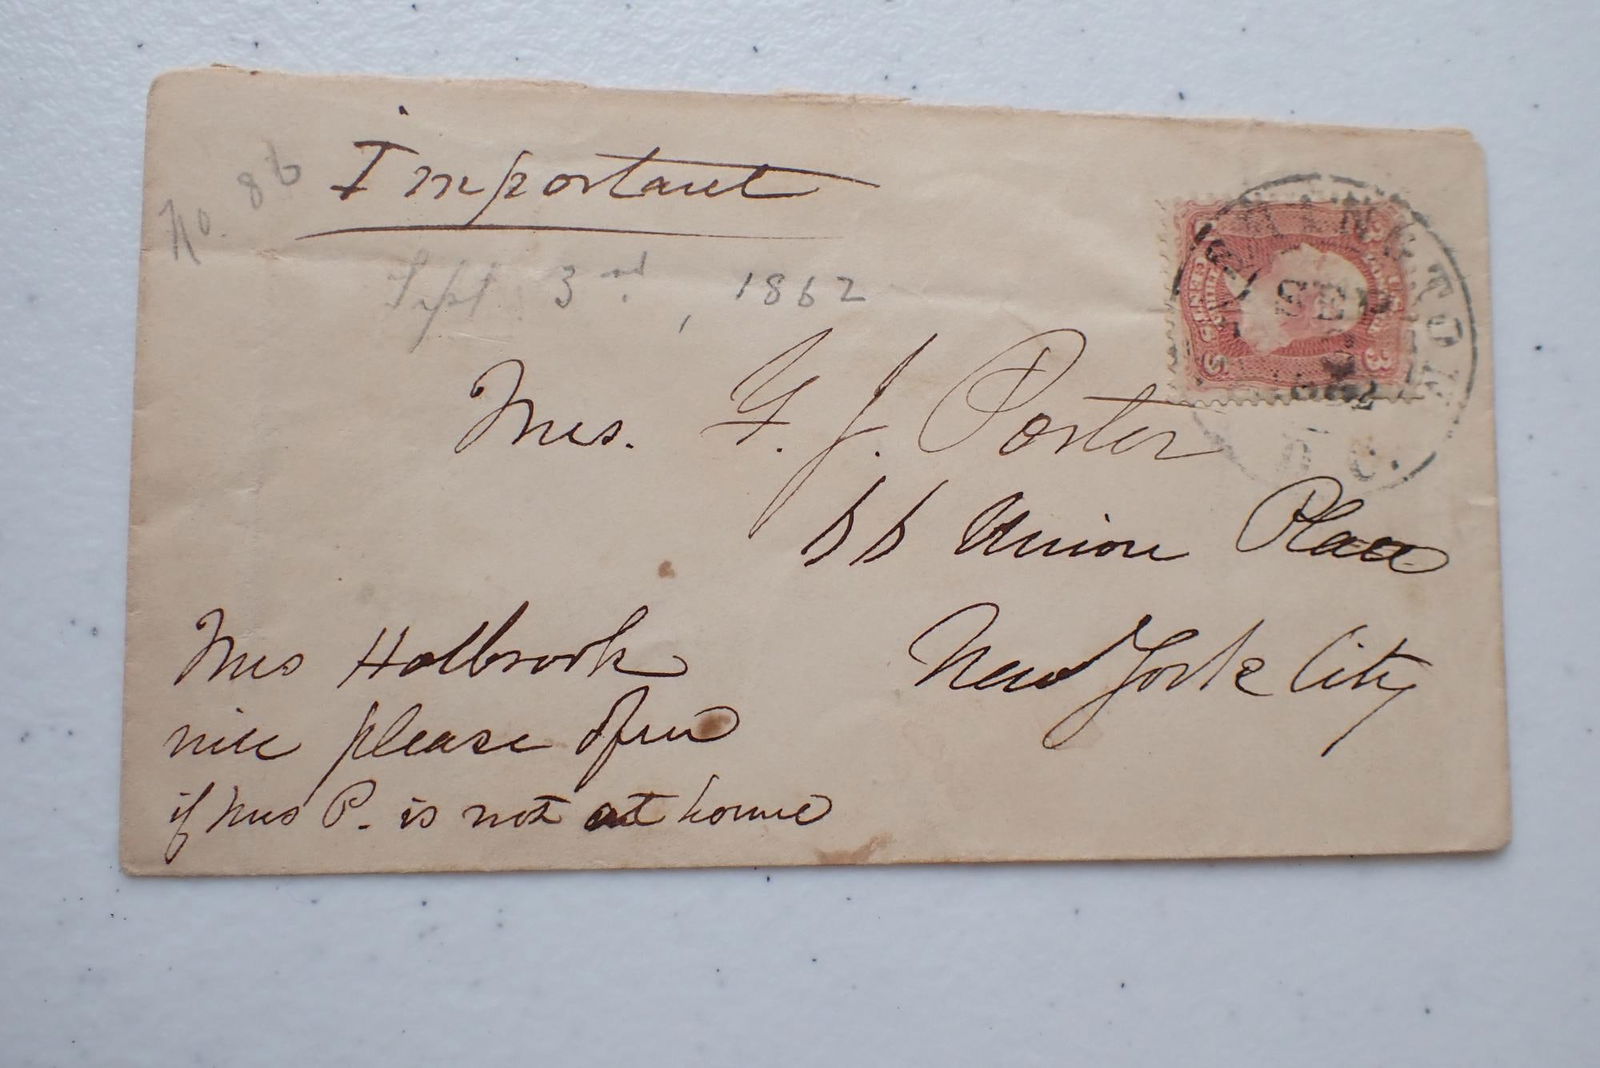 No. 86
Important
Sept 3rd, 1862
WASHINGTON
SEP
1862
D.C.
U.S. POSTAGE
THREE CENTS
3
3
Mrs. F. J. Porter
66 Union Place
New York City
Mrs Holbrook
will please open
if Mrs P. is not at home